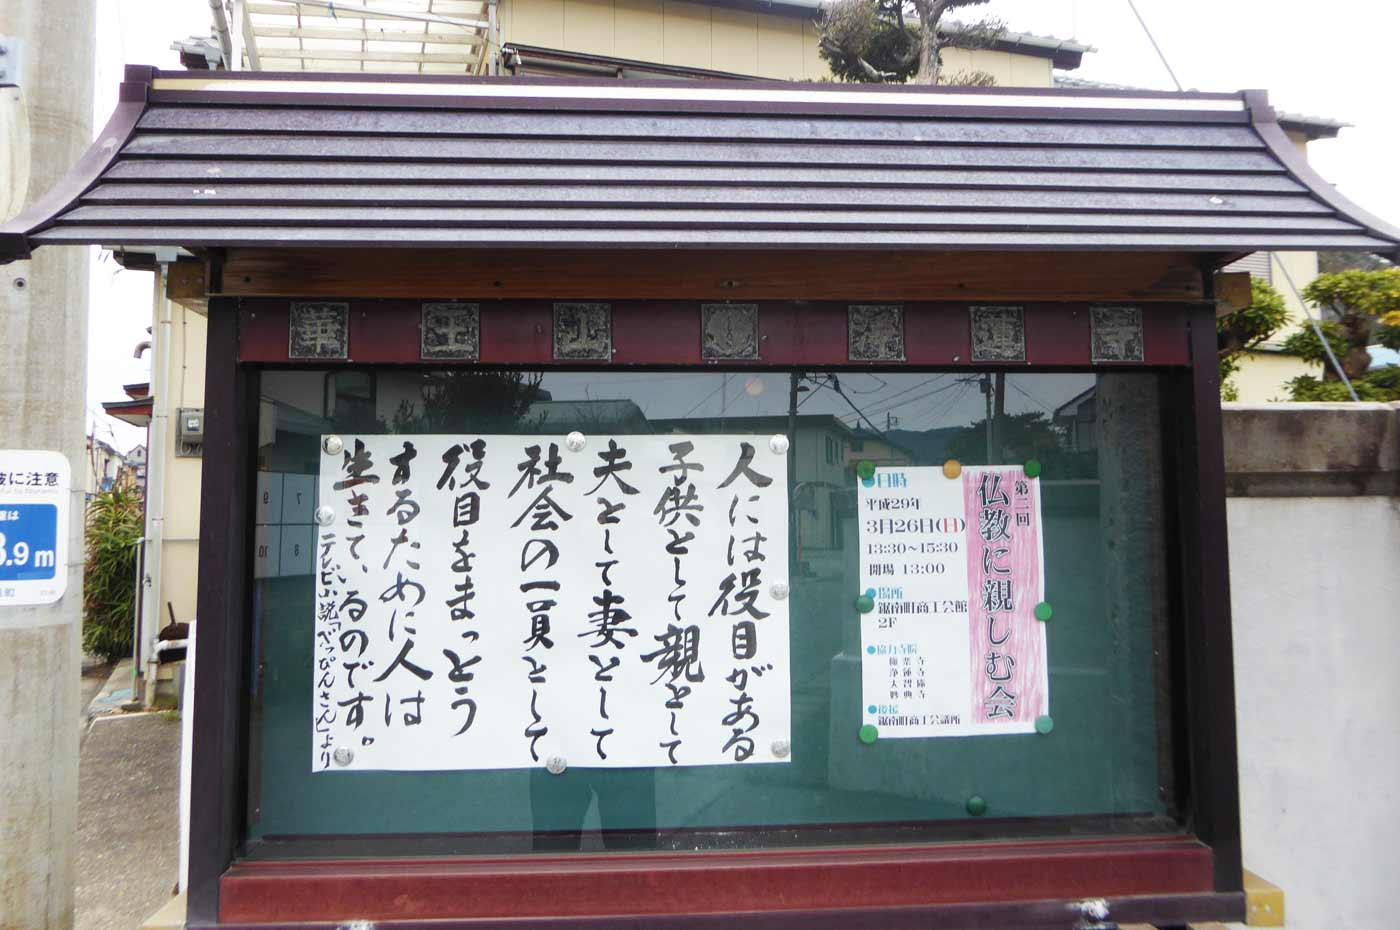 華王山 浄蓮寺
人には役目がある
子供として親として
夫として妻として
社会の一員として
役目をまっとう
するために人は
生きているのです。
テレビ小説「べっぴんさん」より
第二回
仏教に親しむ会
●日時
平成29年
3月26日(日)
13:30～15:30
開場 13:00
●場所
鋸南町商工会館
2F
●協力寺院
浄蓮寺
妙典寺
●後援
鋸南町商工会議所
に注意
.9m
9
7
10
8